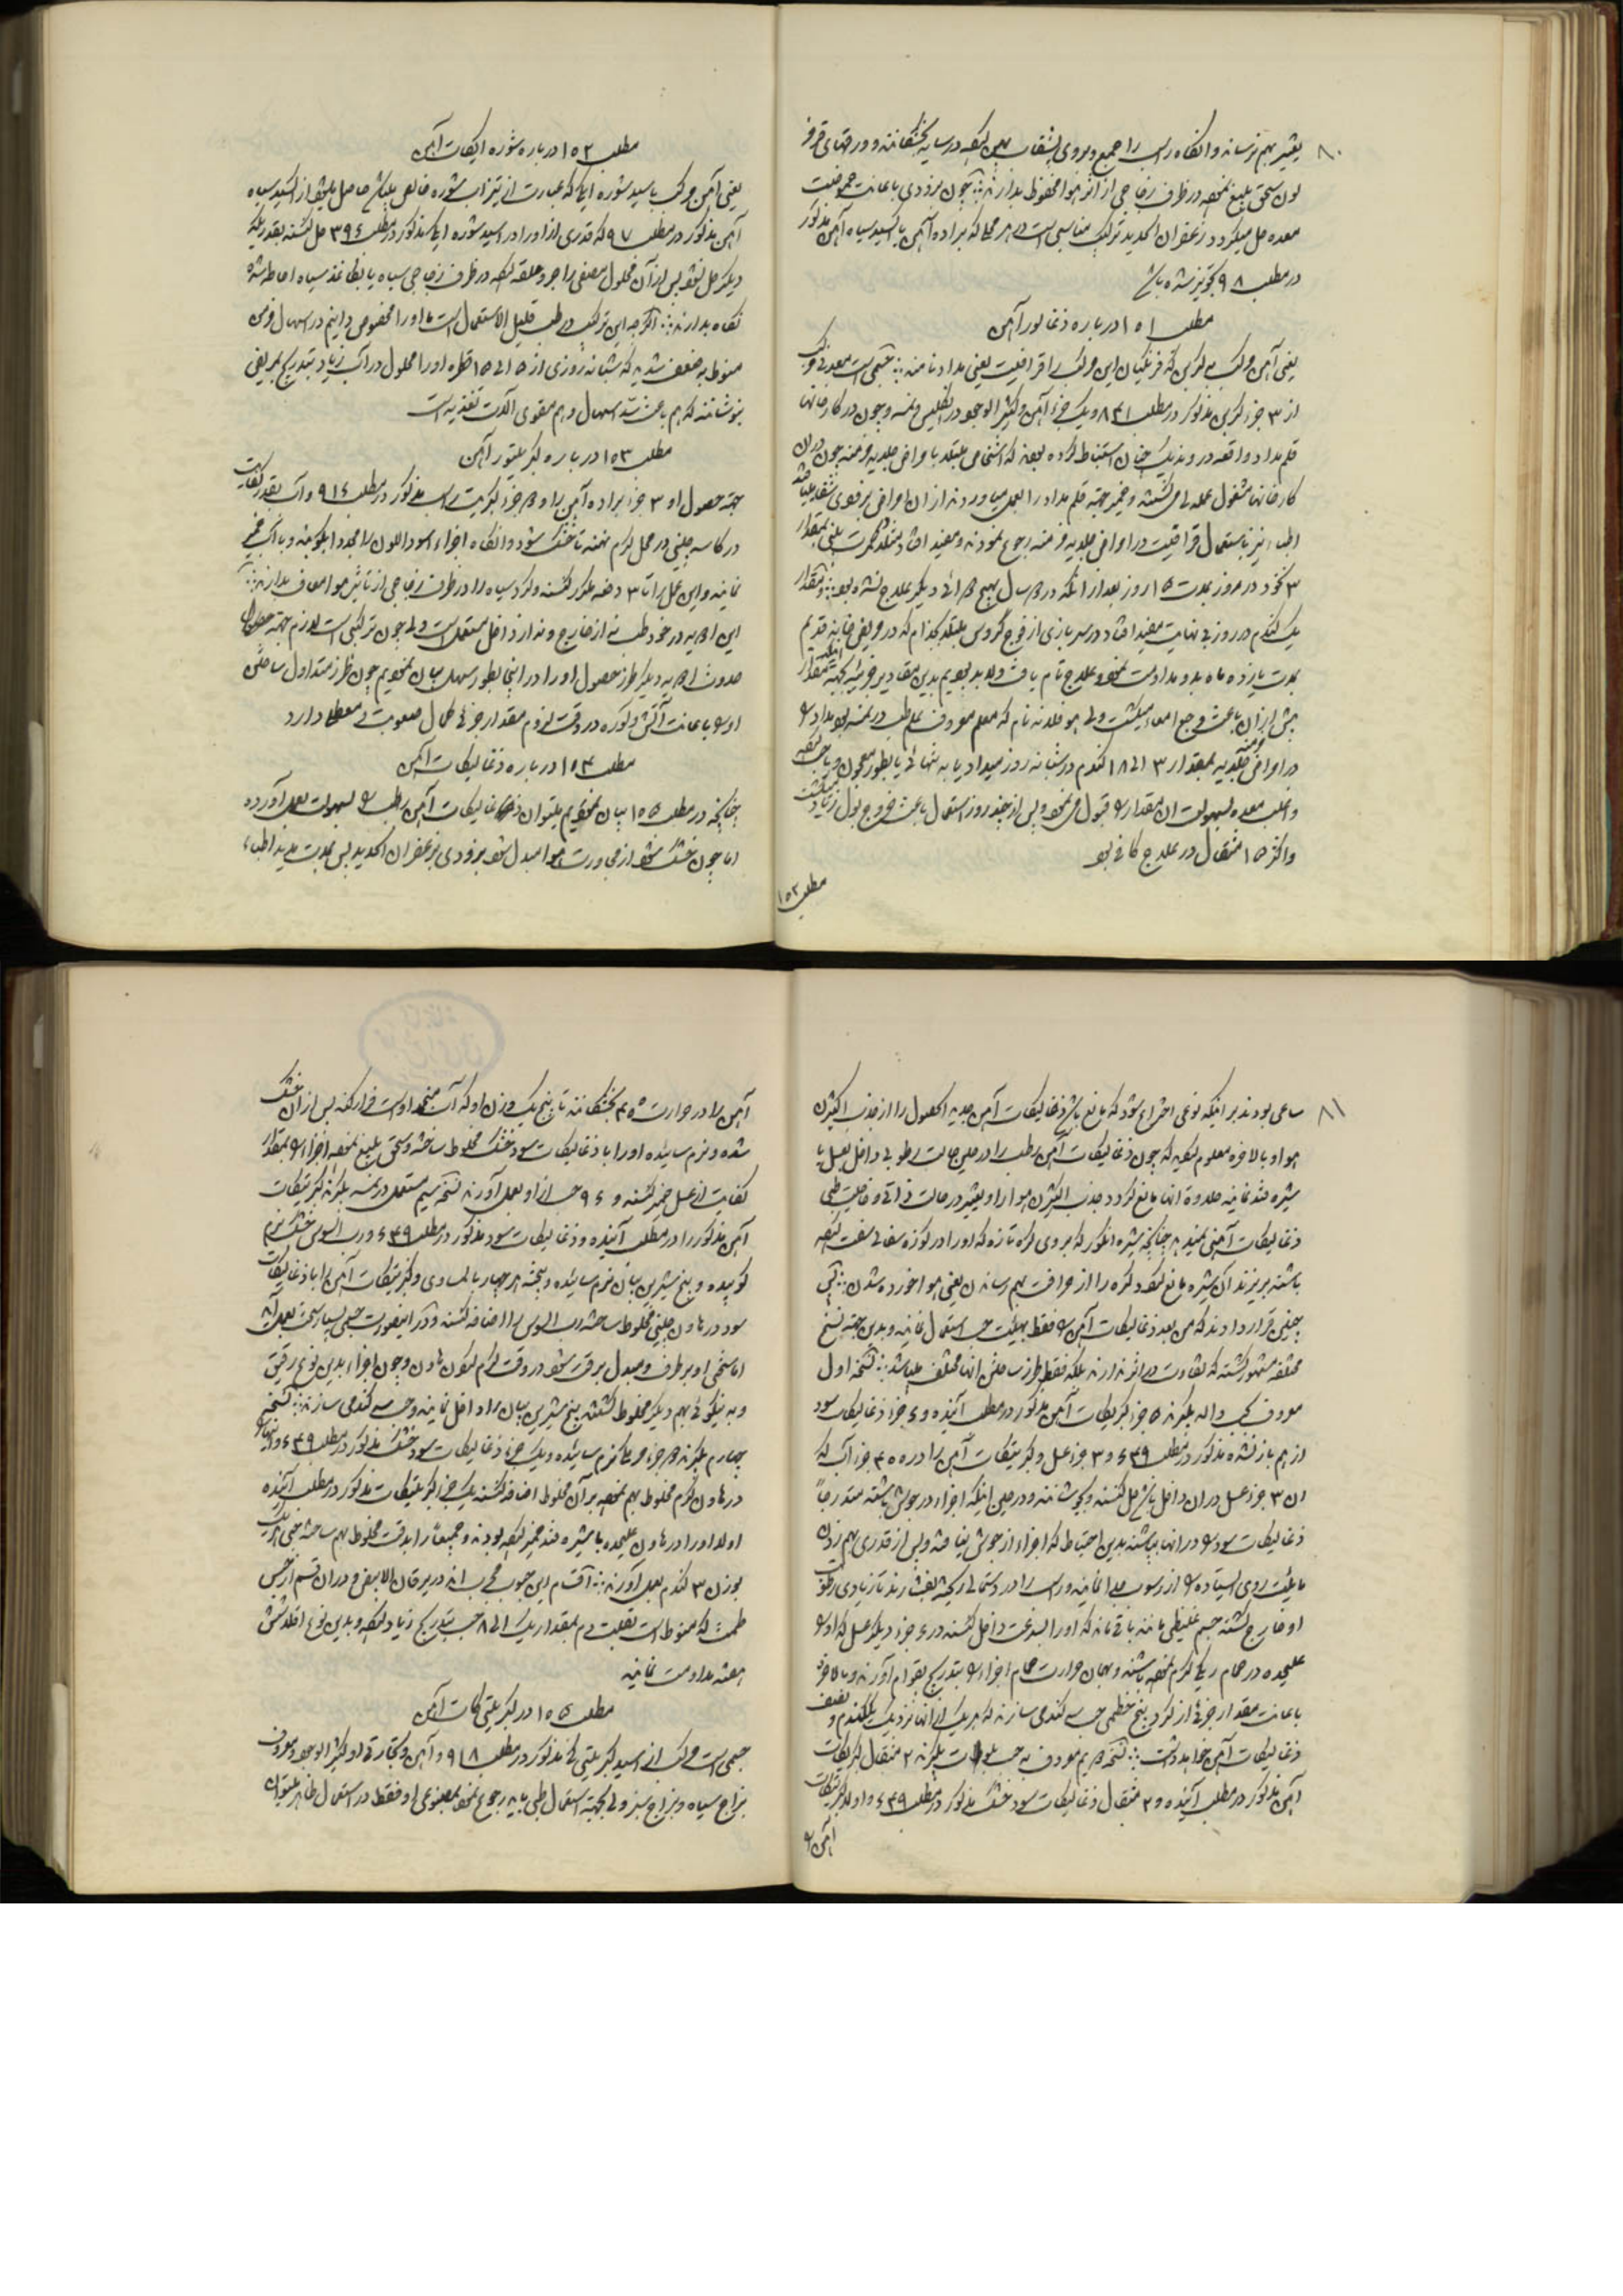 ٨٠
بقشیر بهم برسانند وانگاه رسب را جمع و بروی بشقاب پهن کرده در سایه بخشکانند و در
سحق بلیغ نموده در ظرف زجاجی از اثر هوا محفوظ بدارند چون بزودی باعانت حموضت
معده حل میگردد زعفران الحدید ترکیب مناسبی است در هر محلی که براده آهن یا اکسید سیاه آهن مذکور
در مطلب ٩٨ تجویز شده باشد
مطلب ١٥١ درباره ذغالور آهن
یعنی آهن مرکب با کربن که فرنگیان این مرکب را قرافیت یعنی مداد نامند جسمی است معدنی مرکب
از ٣ جزء کربن مذکور در مطلب ٨٣١ و یک جزء آهن و کثیر الوجود در انگلیس و نمسه و چون در کارخانهای
قلم مداد واقعه در وندیک چنان استنباط کرده بودند که اشخاص مبتلا بامراض جلدیه مزمنه چون در آن
کارخانها مشغول عمله گی می گشتند و خمیر جهة قلم مداد را بعمل می آوردند از ان امراض بزودی شفا می یافتند
اطباء نیز باستعمال قرافیت در امراض جلدیه مزمنه رجوع نمودند و مفید افتاد
٣ نخود در هر روز بمدت ١٥ روز بعد از انکه در سال بهیچ دوائی دیگر علاج نشده بود
یک گندم در روز بی نهایت مفید افتاد و در سربازی از فوج گروس مبتلا بجذام که در مریضخانه قدیم
بمدت یازده ماه بدو مداومت نمود علاج تام یافت
بیش از ان باعث وجع امعا میگشت ولی هوفلاند نام که معلم معروف علم طب در نمسه بود مداد را
در امراض مزمنه جلدیه بمقدار ٣ الی ١٨ گندم در شبانه روز میداد یا به تنهائی یا بطور معجون
و اغلب معده بسهولت ان مقدار را قبول می نمود و پس از چند روز استعمال باعث خروج بول زیاد میگشت
و اکثر ١٥ مثقال در علاج کافی بود
مطلب ١٥٢
مطلب ١٥٢ درباره شوره ایکات آهن
یعنی آهن مرکب با سید شوره ایک که عبارت از تیزاب شوره خالص میباشد حاصل میشود از اکسید سیاه
آهن مذکور در مطلب ٩٧ که قدری از او را در اسید شوره ایک مذکور در مطلب ٣٩٤ حل کنند بقدریکه
دیگر حل نشود پس از آن محلول مصفی را جدا کرده در ظرف زجاجی سیاه یا بکاغذ سیاه احاطه شده
نگاه بدارند اگرچه این ترکیب در طب قلیل الاستعمال است ما او را مخصوص دانیم در اسهال مزمن
منوط به ضعف شدید که شبانه روزی از ٥ الی ١٥ قطره او را محلول در آب زیاد بتدریج بمریض
بنوشانند که هم باعث سد اسهال و هم مقوی آلات تغذیه است
مطلب ١٥٣ درباره کبریتور آهن
جهة حصول او ٣ جزء براده آهن را و دو جزء کبریت رسب مذکور در مطلب ٩١٤ و آب بقدر کفایت
در کاسه چینی در محل گرم نهند تا خشک شود و انگاه اجزاء اسود اللون را مجددا بکوبند و با آب خمیر
نمایند و این عمل را تا ٣ دفعه مکرر کنند و گرد سیاه را در ظرف زجاجی از تاثیر هوا معاف بدارند
این ادویه در خود طب نه از خارج و نه از داخل مستعمل است ولی چون ترکیبی است لازم جهة حصول
ادویه دیگر طرز حصول او را در اینجا بطور سهل بیان نمودیم چون طرز متداول ساختن
او باعانت آتش و کوره در وقت لزوم مقدار جزئی کمال صعوبت و معطلی دارد
مطلب ١٥٤ درباره ذغالیکات آهن
چنانچه در مطلب ١٥٥ بیان نمودیم میتوان ذغالیکات آهن رطب را بسهولت بعمل آورد
اما چون خشک شود از مجاورت هوا مبدل شود بزودی بزعفران الحدید پس بمدت مدید اطباء
٨١
ساعی بودند بر اینکه نوعی اختراع شود که مانع باشد ذغالیکات آهن جدید الحصول را از جذب اکیژن
هوا و بالاخره معلوم کرده که چون ذغالیکات آهن رطب را در همین حالت رطوبی داخل عسل یا
شیره قند نمایند حلاوة انها مانع گردد جذب اکیژن هوا را و بقشیر در حالت ذاتی و خاصیت طبی
ذغالیکات آهنی نمیدهد چنانچه شیره انگور که بروی کره تازه که او را در کوزه سفالی سفت کرده
باشند بریزند ان شیره مانع گردد کره را از حرافت بهم رساندن یعنی هوا خورده شدن پس
چنین قرار دادند که من بعد ذغالیکات آهن را فقط بهیئت حب استعمال نمایند و بدین جهة نسخ
مختلفه مشهور گشته که تفاوت در اثر ندارند بلکه فقط طرز ساختن انها مختلف میباشد نسخه اول
معروف بحب واله بگیرند ٥ جزء کبریتکات آهن مذکور در مطلب آینده و ٤ جزء ذغالیکات سود
از هم باز نشده مذکور در مطلب ٤٣٩ و ٣ جزء عسل و کبریتیکات آهن را در ٤٠٠ جزء آب که
ان ٣ جزء عسل در ان داخل باشد حل کنند و بجوشانند و در همین اینکه اجزاء در جوش باشند متدرجاً
ذغالیکات سود را در انها بپاشند بدین احتیاط که اجزاء از جوش نیفتد و پس از قدری بهم زدن
مایع روی ایستاده را از رسوب جدا نمایند و رسب را در دستمالی ریخته بفشارند تا زیادی رطوبت
او خارج گشته جسم غلیظی مانند باقی ماند که او را بسرعت داخل کنند در ٤ جزء دیگر عسل که او را
علیحده در حمام ریگ گرم نموده باشند و بهمان حرارت حمام اجزاء را بتدریج بقوام آورند و بالاخره
باعانت مقدار جزئی از گرد بیخ خطمی حب ٤ گندمی سازند که هر یک از انها نزدیک یک گندم و نصف
ذغالیکات آهن خواهد داشت نسخه دویم معروف به حب بلود است بگیرند ٢ مثقال کبریتیکات
آهن مذکور در مطلب آینده و ٢ مثقال ذغالیکات سود خشک مذکور در مطلب ٤٣٩ و اولا کبریتیکات
آهن را
آهن را در حرارت ٤٠ بخشکانند تا پنج یک وزن او که آب منجمد اوست فرار کند پس از ان خشک
شده و نرم سائیده او را با ذغالیکات سود خشک مخلوط ساخته و سحق بلیغ نموده اجزاء را بمقدار
کفایت از عسل خمیر کنند و ٩٦ حب از او بعمل آورند نسخه سیم مستعمل در نمسه بگیرند کبریتیکات
آهن مذکور را در مطلب آینده و ذغالیکات سود مذکور در مطلب ٤٣٩ و رب السوس خشک نرم
کوبیده و بیخ شیرین بیان نرم سائیده و پخته هر چهار بالمساوی و کبریتیکات آهن را با ذغالیکات
سود در هاون چینی مخلوط ساخته رب السوس را اضافه کنند و در اینصورت خیلی بسیار سخت بعمل آید
اما سختی او برطرف و مبدل برقت شود در وقت گرم کردن هاون و چون اجزاء بدین نوع رقیق
و به نیکوئی بهم دیگر مخلوط گشتند بیخ شیرین بیان را داخل نمایند و حب ٤ گندمی سازند نسخه
چهارم بگیرند دو جزء مرمکی نرم سائیده و یک جزء ذغالیکات سود خشک مذکور در مطلب ٤٣٩ و انها را
در هاون گرم مخلوط بهم نموده بر آن مخلوط اضافه کنند یک جزء کبریتیکات مذکور در مطلب آینده
اولا او را در هاون علیحده با شیره قند خمیر کرده بودند و جمیعاً را بدقت مخلوط بهم ساخته حب
بوزن ٣ گندم بعمل آورند اقسام این حبوب مجرب اند در یرقان الابیض و در ان قسم از حبس
طمث که منوط است بقلت دم بمقدار یک الی ٨ حب بتدریج زیاد کرده و بدین نوع اقلا شش
هفته مداومت نمایند
مطلب ١٥٥ در کبریتیکات آهن
جسمی است مرکب از اسید کبریتیک مذکور در مطلب ٩١٨ و آهن و تجارتی او کثیر الوجود و معروف
بزاج سیاه و بزاج سبز ولی بجهة استعمال طبی باید رجوع نمود بمصنوعی او فقط در استعمال ظاهر میتوان